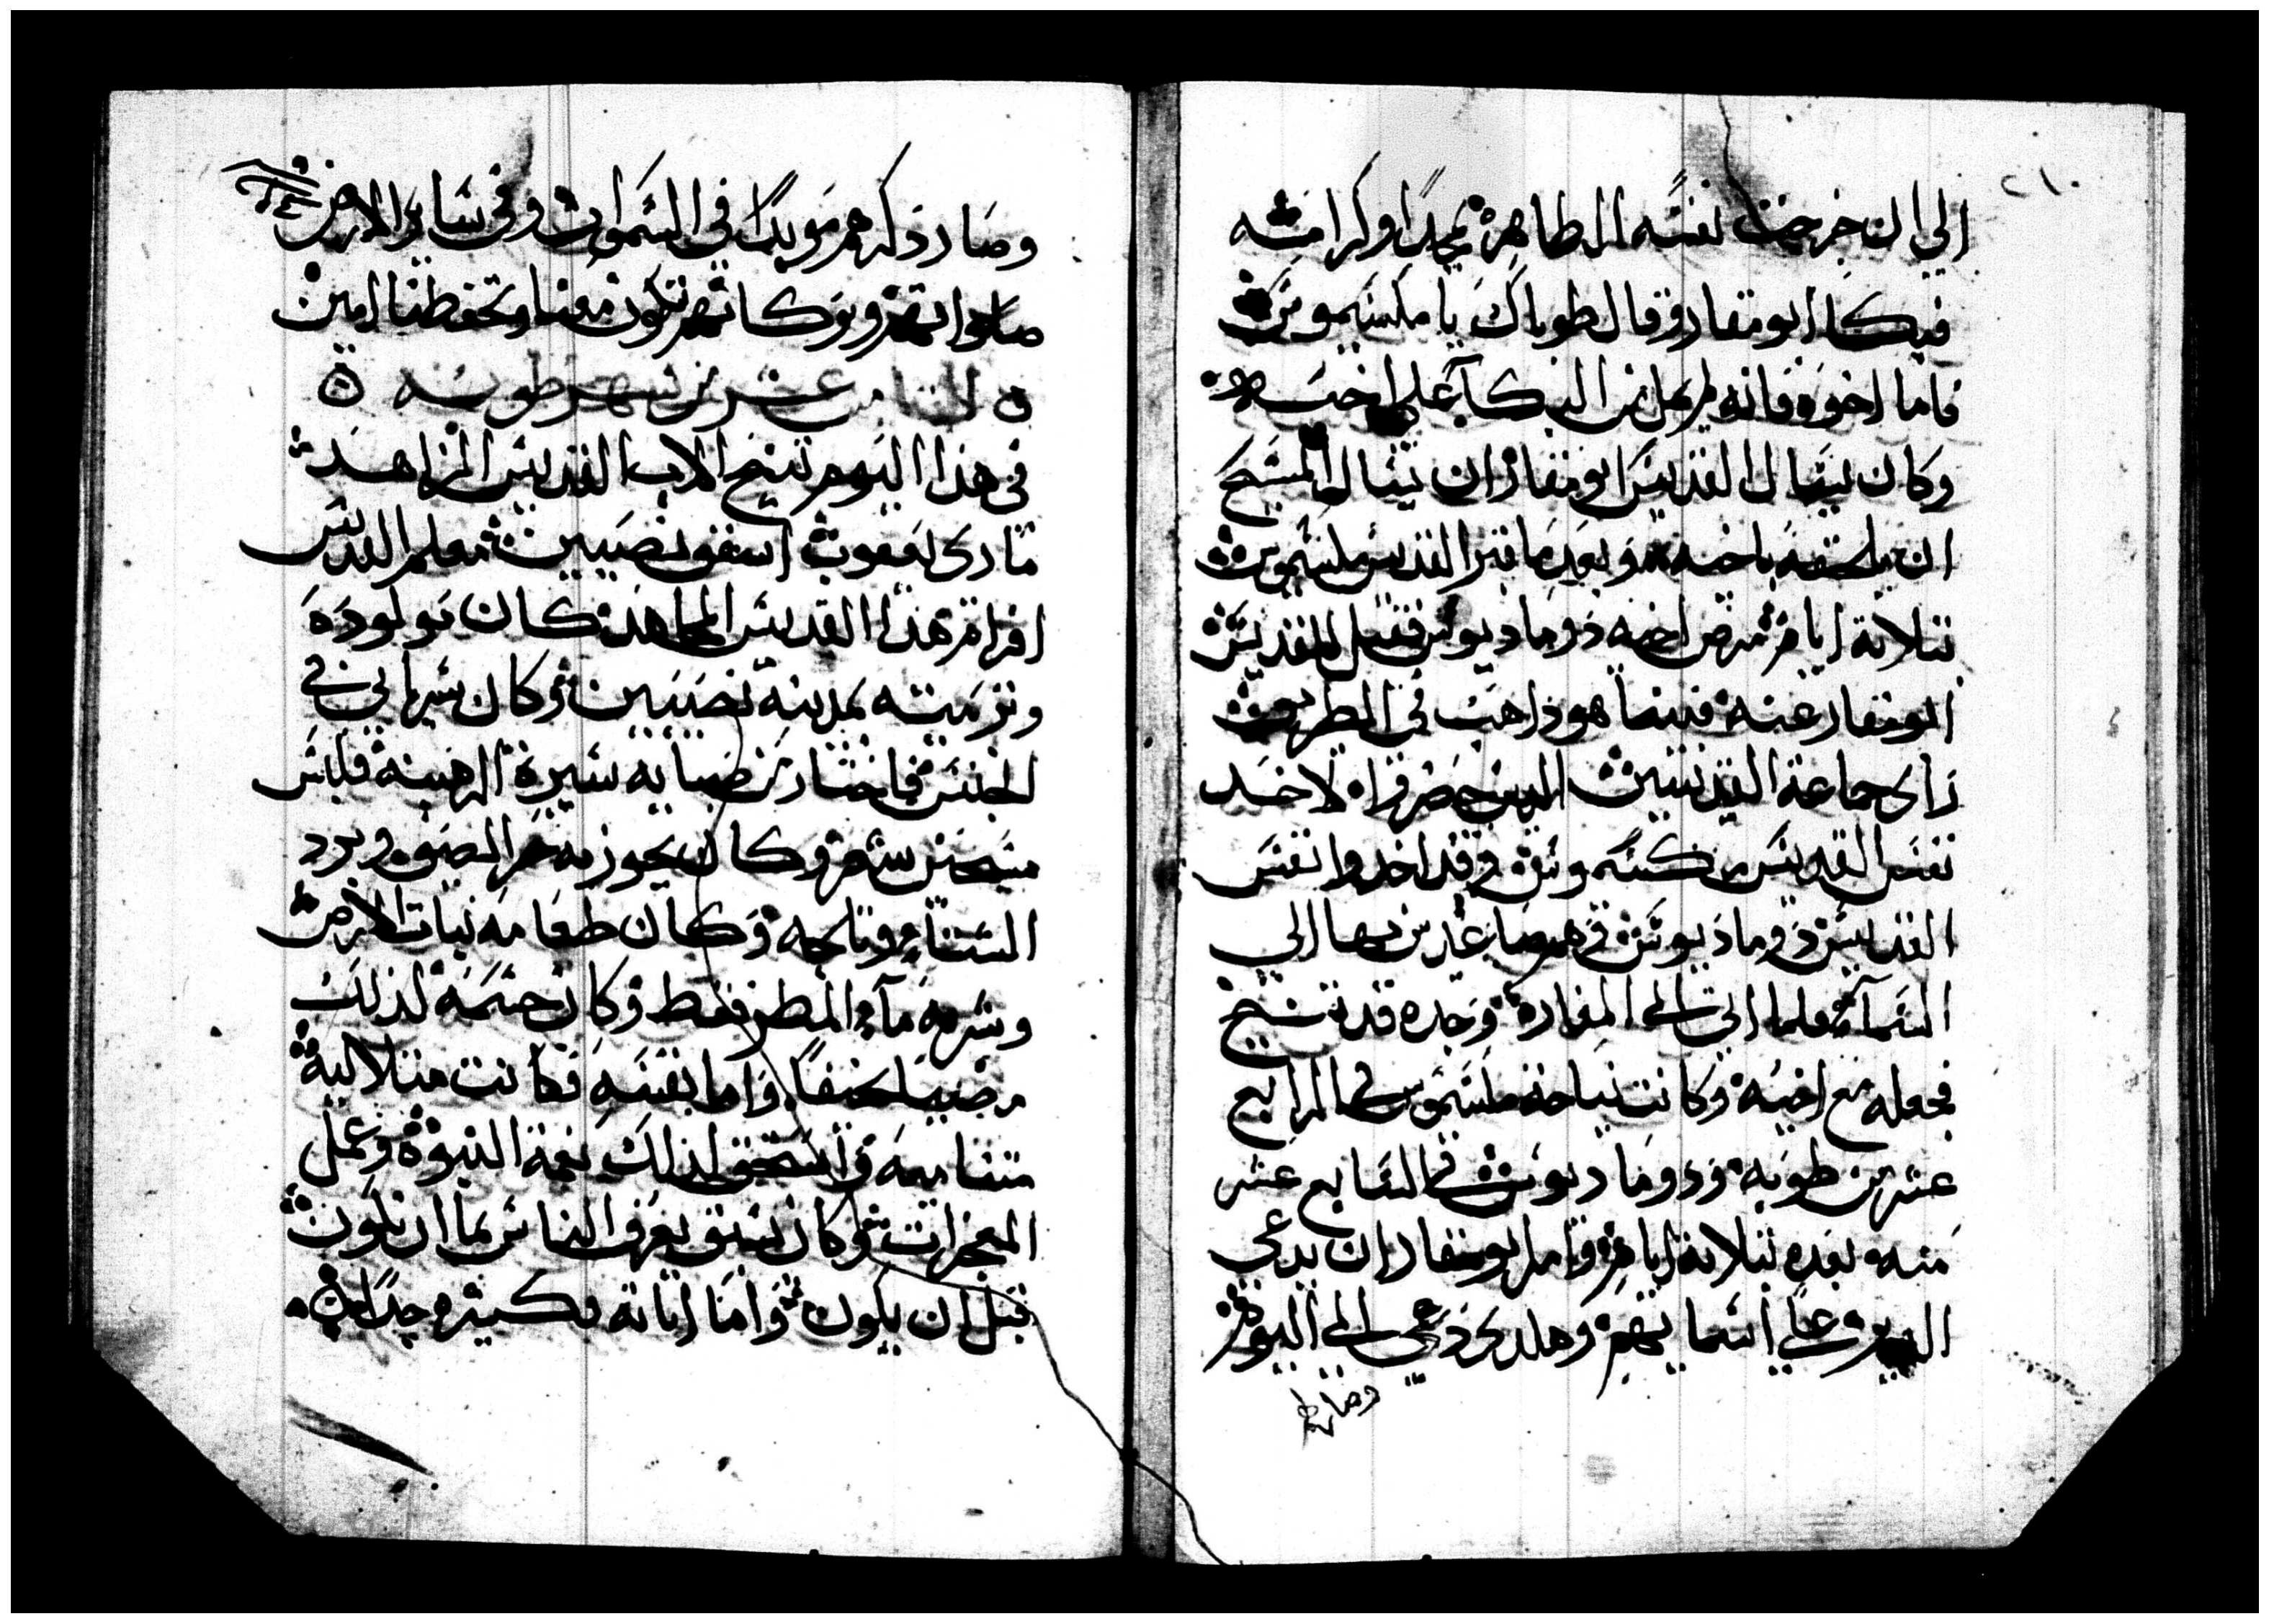 ٢١٠
الي ان خرجت نفسه الطاهره بمجدا وكرامه
فبكا ابو مقار وقال طوباك يا مكسيموس
فاما اخوه فانه لم يهل من البكا علي اخيه
وكان يسال القديس ابو مقار ان يسال المسيح
ان يلحقه باخيه وبعد ما قبر القديس مكسيموس
بتلاتة ايام مرض اخيه دوماديوس فقيل للقديس
ابو مقار عنه فبينما هو ذاهب في الطريق
راى جماعة القديسين الدين حضروا لاخد
نفس القديس مكسيموس وقد اخدوا نفس
القديس دوماديوس وهم صاعدين بها الي
السماء فلما اتى الي المغارة وجده قد تنيح
فجعله مع اخيه وكانت نياحة مكسيموس في الرابع
عشر من طوبه ودوماديوس في السابع عشر
منه بعده بتلاتة ايام وامر ابو مقار ان يدعي
الدير علي اسمايهم وهكدى دعي الي اليوم
وصار
وصار ذكرهم موبدا في السموات وفي ساير الارض
صلواتهم وبركاتهم تكون معنا وتحفظنا امين
الثامن عشر من شهر طوبه
في هذا اليوم تنيح الاب القديس الزاهد
مارى يعقوب اسقف نصيبين معلم القديس
افرام هذا القديس المجاهد كان مولوده
وتربيته بمدينة نصيبين وكان سرياني في
الجنس فاختار من صباه سيرة الرهبنه فلبس
مسح من شعر وكان يجوز منه حر الصيف وبرد
الشتاء وتلجه وكان طعامه نبات الارض
وشربه ماء المطر فقط وكان جسمه لذلك
مضيا نحيفا واما نفسه فكانت متلاليه
متساميه واستحق لذلك نعمة النبوة وعمل
المعجزات وكان يسبق يعرف الناس بما ان يكون
قبل ان يكون واما اياته فكثيره جدا